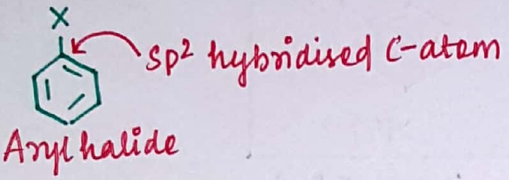 X
sp² hybridised C-atom
Aryl halide